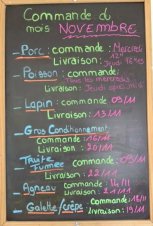 Commande du
mois NOVEMBRE
- Porc : commande : Mercredi
Livraison : Jeudi
- Poisson : commande :
Tous les mercredis
Livraison : Jeudi
- Lapin : commande 09/11
Livraison : 13/11
- Gros Conditionnement
commande 16/11
Livraison : 20/11
- Truite Fumée commande : 09/11
Livraison : 22/11
- Agneau : commande 14/11
Livraison : 21/11
- Galette/Crêpe : commande : 18/11
Livraison : 19/11